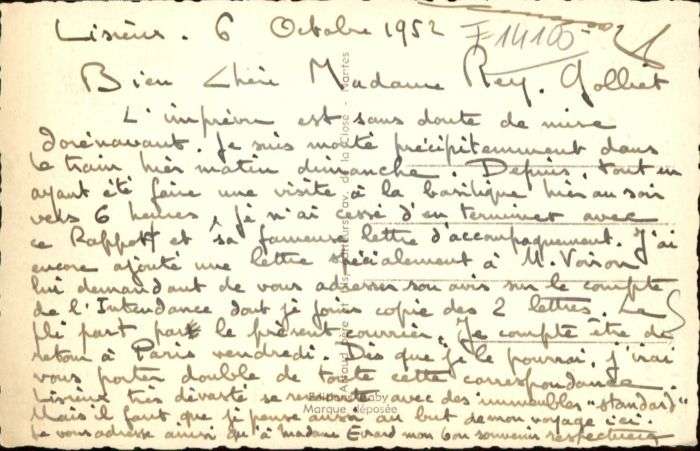 Lisieux. 6 Octobre 1952 F 14100
Bien Chère Madame Rey-Golliet
L'imprévu est sans doute de mise
dorénavant. Je suis monté précipitemment dans
le train hier matin dimanche. Depuis, tout en
ayant été faire une visite à la basilique hier au soir
vers 6 heures, je n'ai cessé d'en terminer avec
ce Rapport et sa fameuse lettre d'accompagnement. J'ai
encore ajouté une lettre spécialement à M. Voiron
lui demandant de vous adresser son avis sur le compte
de l'Intendance dont je joins copie des 2 lettres. Le
pli part par le présent courrier. Je compte être de
retour à Paris vendredi. Dès que je le pourrai, j'irai
vous porter double de toute cette correspondance.
Lisieux très dévasté se reconstruit avec des immeubles "standard"
Mais il faut que je pense aussi au but de mon voyage ici.
Je vous adresse ainsi qu'à Madame Evrard mon bon souvenir respectueux
Editions Gaby
Marque déposée
Artaud Père et Fils, Editeurs, av. de la Close - Nantes